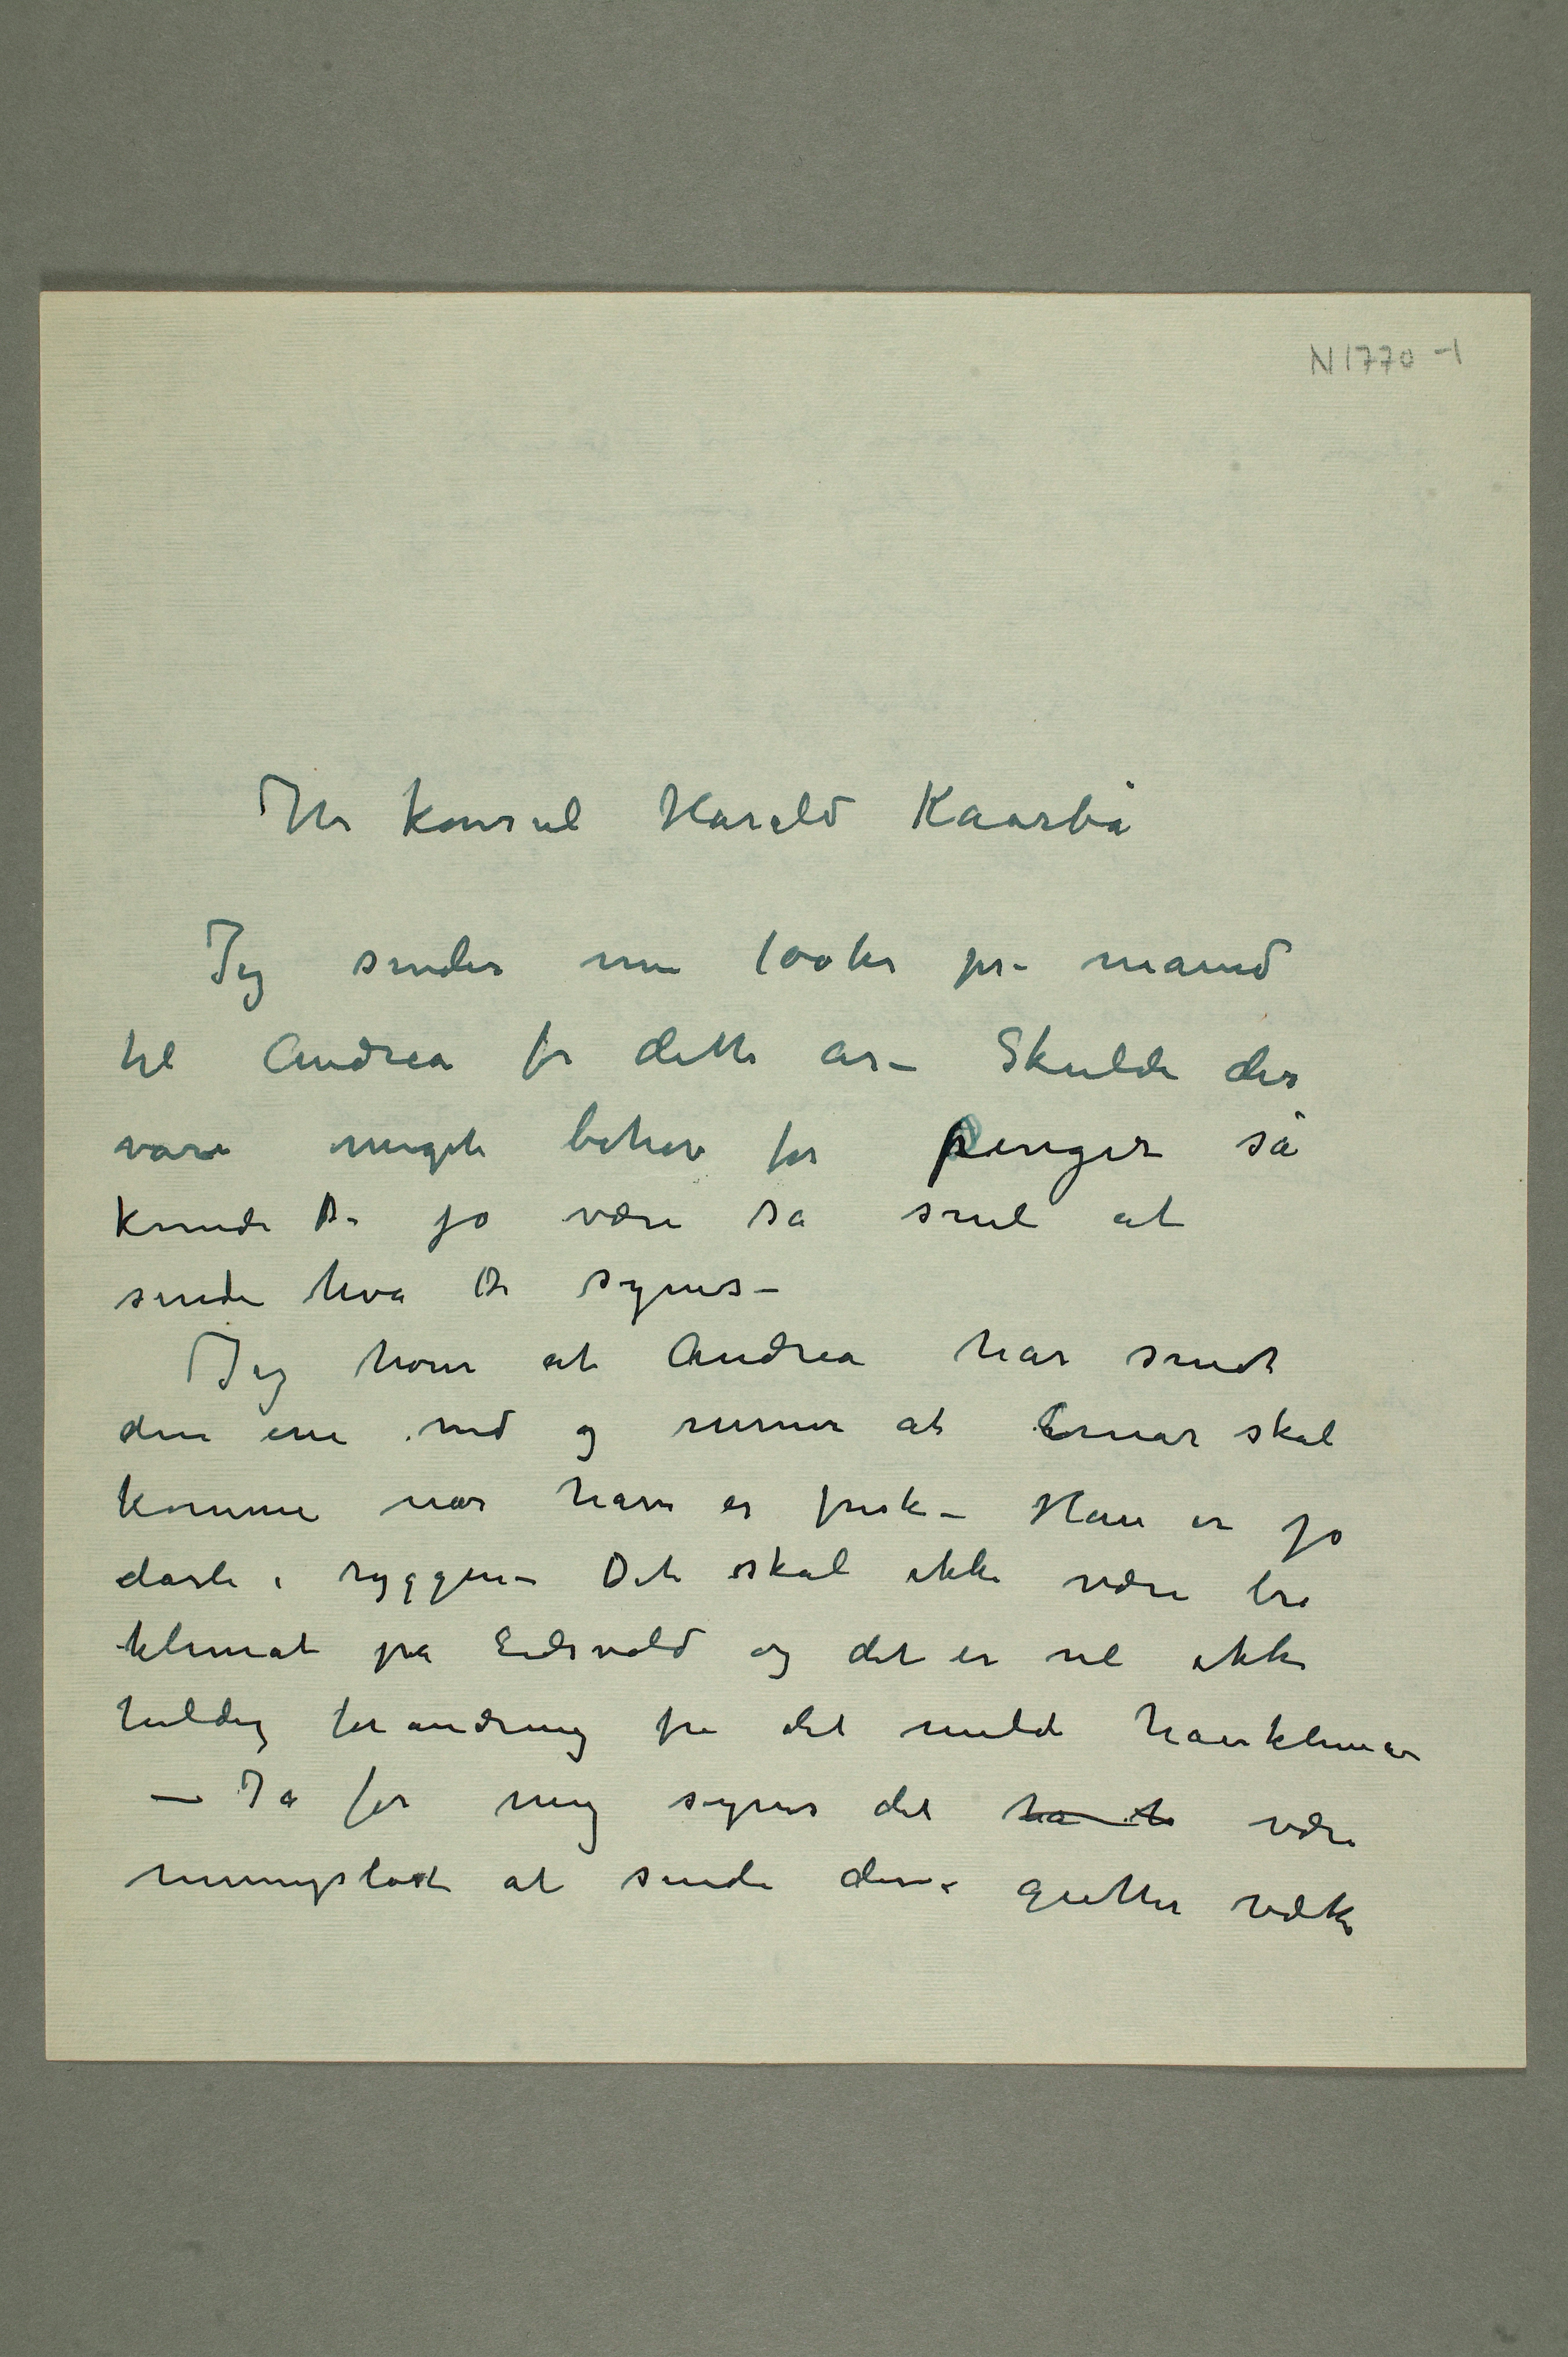 N 1770-1
Hr konsul Harald Kaarbø
Jeg sender nu 100 kr pr. måned
til Andrea for dette år – Skulde der
være meget behov for penger så
kunde De jo være så snil at
sende hva De synes –
Jeg hører at Andrea har sendt
den ene ned og mener at Einar skal
komme når han er frisk – Han er jo
dårli i ryggen – Det skal ikke være bra
klimat på Eidsvold og det er vel ikke
heldig forandring fra det milde havklima
– Ja for mig synes det være
meningsløst at sende disse gutter væk